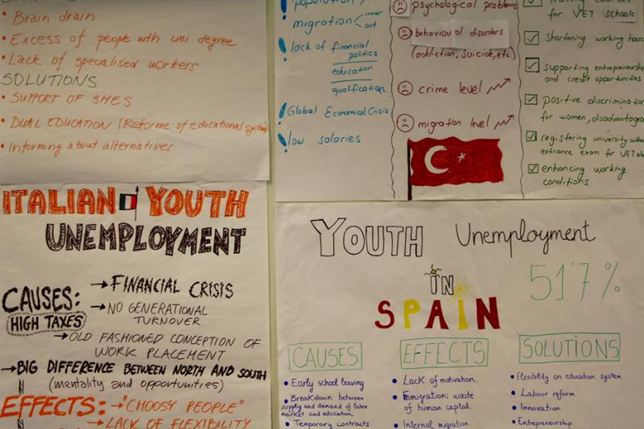 • Brain drain
• Excess of people with uni degree
• Lack of specialised workers
SOLUTIONS
• SUPPORT OF SMES
• DUAL EDUCATION (Reforme of educational system)
• Informing about alternatives
population
migration
inner
out
! lack of financial
politics
education
qualification
! Global Economical Crisis
! low salaries
psychological problems
behavioural disorders
(addiction, suicide, etc)
crime level
migration level
training courses
for VET schools
shortening working hours
supporting entrepreneurship
and credit opportunities
positive discrimin
for women, disadvantaged
registering university without
entrance exam for VET
enhancing working
conditions
ITALIAN YOUTH
UNEMPLOYMENT
CAUSES:
→ FINANCIAL CRISIS
HIGH TAXES
→ NO GENERATIONAL
TURNOVER
→ OLD FASHIONED CONCEPTION OF
WORK PLACEMENT
→ BIG DIFFERENCE BETWEEN NORTH AND SOUTH
(mentality and opportunities)
EFFECTS: → "CHOOSY PEOPLE"
→ LACK OF FLEXIBILITY
YOUTH Unemployment
IN
SPAIN
51'7%
CAUSES
• Early school leaving
• Breakdown between
supply and demand of labor
market and education,
• Temporary contracts
EFFECTS
• Lack of motivation.
• Immigration; waste
of human capital.
• Internal migration
SOLUTIONS
• Flexibility on education system
• Labour reform.
• Innovation.
• Entrepreneurship